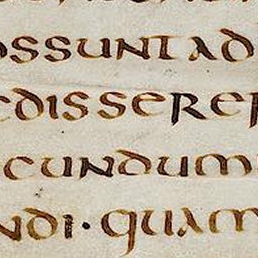 ossunt ad
edisserer
ecundum
ndi · quam